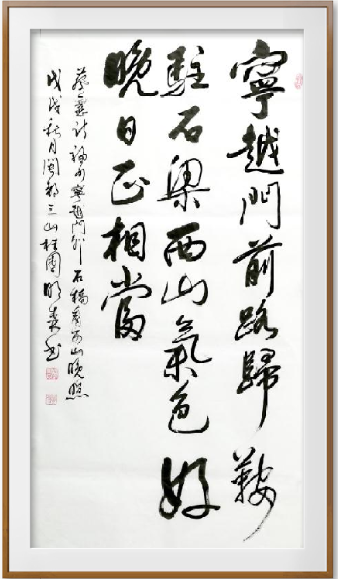 寧越門前路歸鞍
駐石梁西山氣色好
晚日正相當
蔡襄詩福州寧越門外石橋看西山晚照
戊戌秋月閩都三山桂園明森书